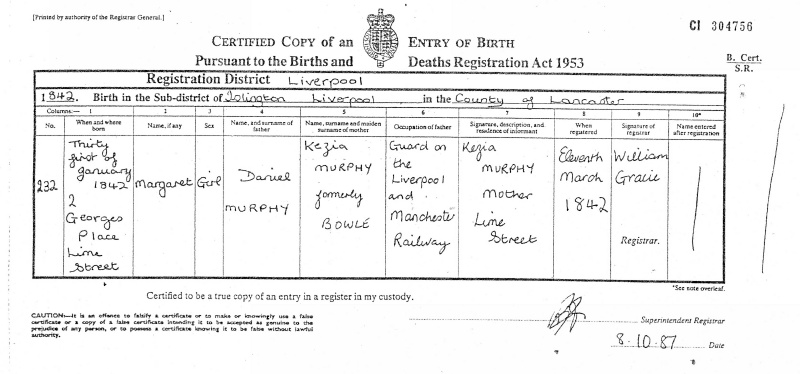 [Printed by authority of the Registrar General.]
CI 304756
CERTIFIED COPY OF AN ENTRY OF BIRTH
Pursuant to the Births and Deaths Registration Act 1953
B. Cert.
S.R.
Registration District Liverpool
1842. Birth in the Sub-district of Islington Liverpool in the County of Lancaster
Columns:— 1 2 3 4 5 6 7 8 9 10*
No. When and where born Name, if any Sex Name, and surname of father Name, surname and maiden surname of mother Occupation of father Signature, description, and residence of informant When registered Signature of registrar Name entered after registration
232
Thirty
first of
January
1842
2
Georges
Place
Lime
Street
Margaret
Girl
Daniel
MURPHY
Kezia
MURPHY
formerly
BOWLE
Guard on
the
Liverpool
and
Manchester
Railway
Kezia
MURPHY
Mother
Lime
Street
Eleventh
March
1842
William
Gracie
Registrar.
*See note overleaf.
Certified to be a true copy of an entry in a register in my custody.
CAUTION:—It is an offence to falsify a certificate or to make or knowingly use a false
certificate or a copy of a false certificate intending it to be accepted as genuine to the
prejudice of any person, or to possess a certificate knowing it to be false without lawful
authority.
Superintendent Registrar
8-10-87 Date